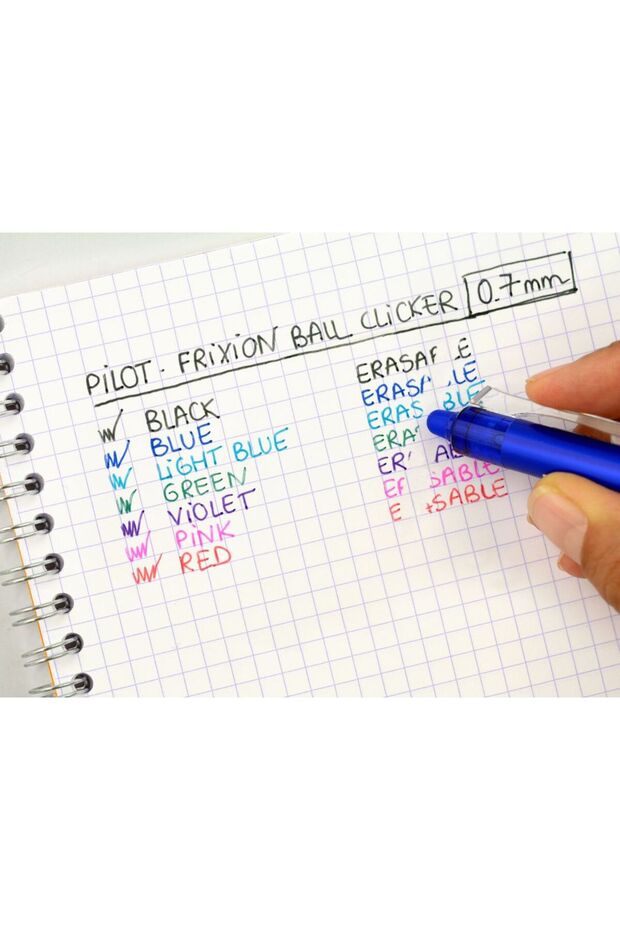 PILOT. FRIXION BALL CLICKER 0.7mm
BLACK ERASA E
BLUE ERAS LE
LIGHT BLUE ERAS BLE
GREEN ERA
VIOLET ER AB
PINK E SABLE
RED E SABLE